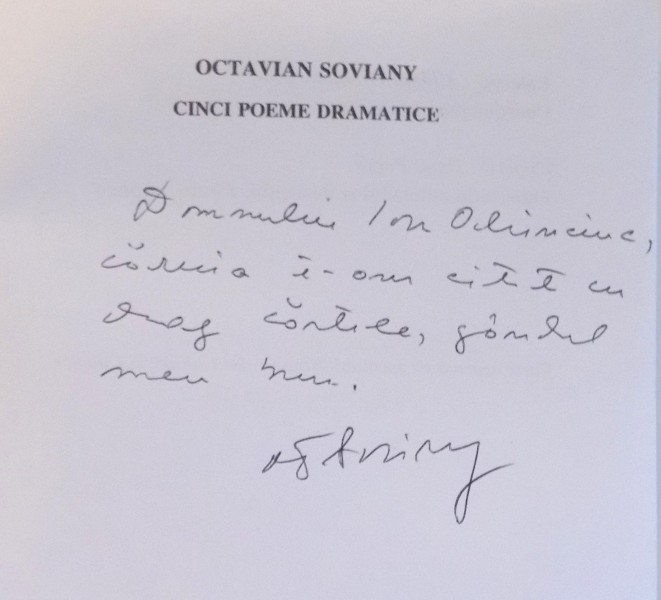 OCTAVIAN SOVIANY
CINCI POEME DRAMATICE
Domnului Ion Ochinciuc,
căruia i-am citit cu
drag cărțile, gândul
meu bun.
OSoviany